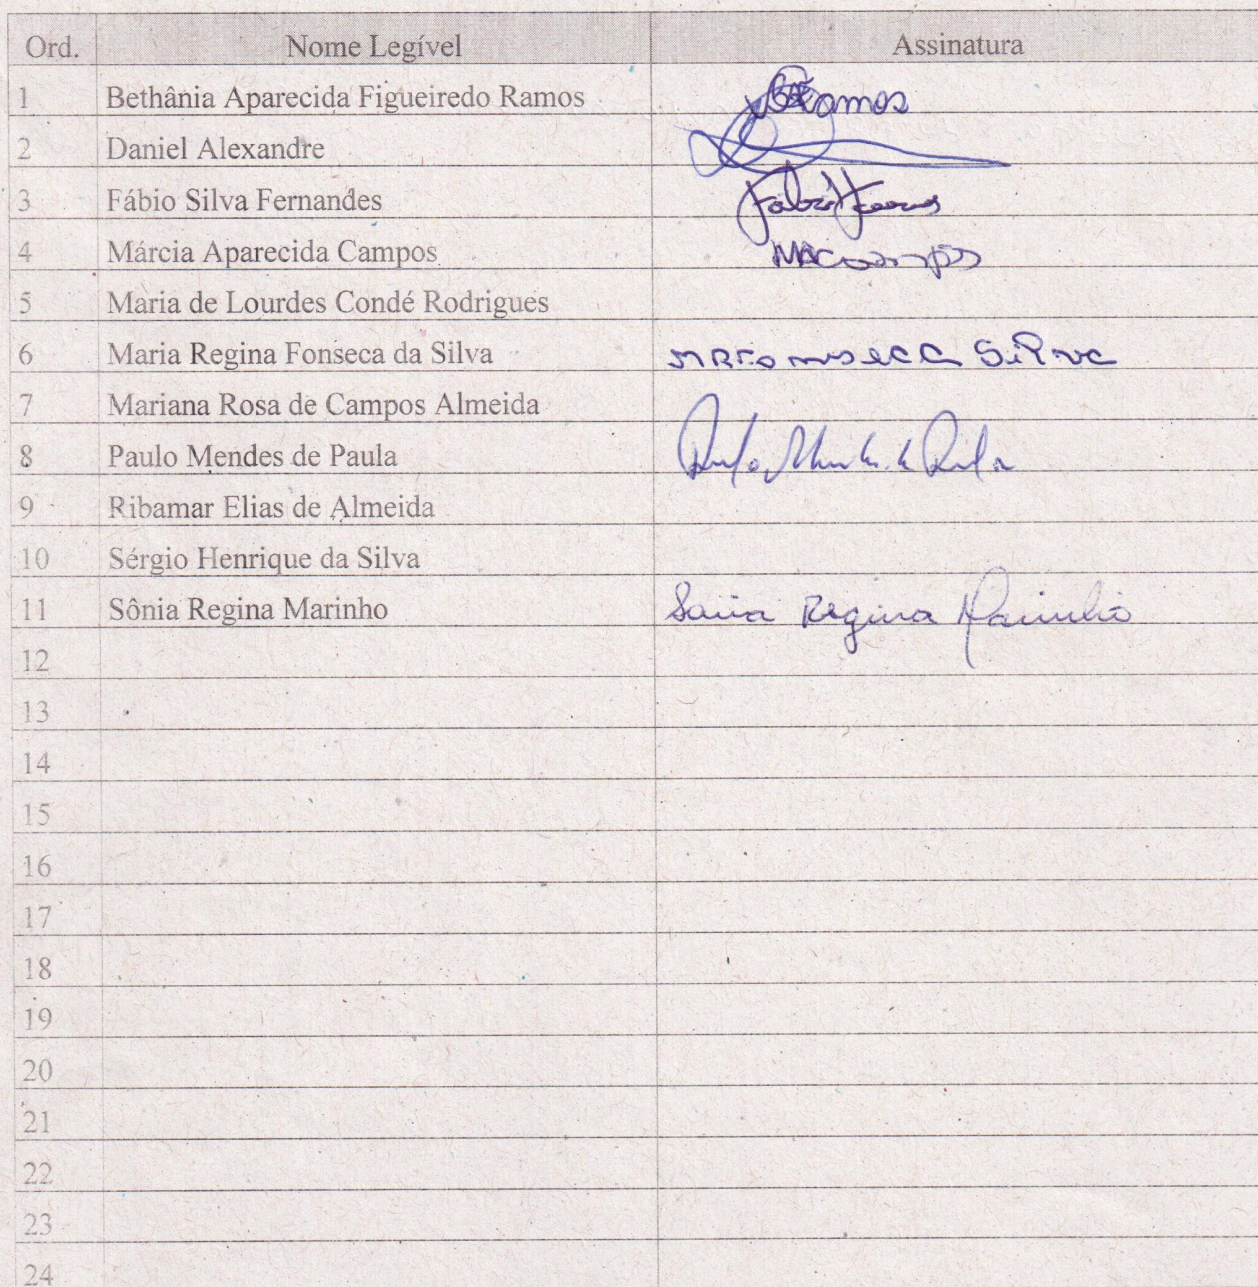 Ord. Nome Legível Assinatura
1 Bethânia Aparecida Figueiredo Ramos BARamos
2 Daniel Alexandre
3 Fábio Silva Fernandes
4 Márcia Aparecida Campos MACampos
5 Maria de Lourdes Condé Rodrigues
6 Maria Regina Fonseca da Silva MRFonseca Silva
7 Mariana Rosa de Campos Almeida
8 Paulo Mendes de Paula Paulo Mendes de Paula
9 Ribamar Elias de Almeida
10 Sérgio Henrique da Silva
11 Sônia Regina Marinho Sonia Regina Marinho
12
13
14
15
16
17
18
19
20
21
22
23
24